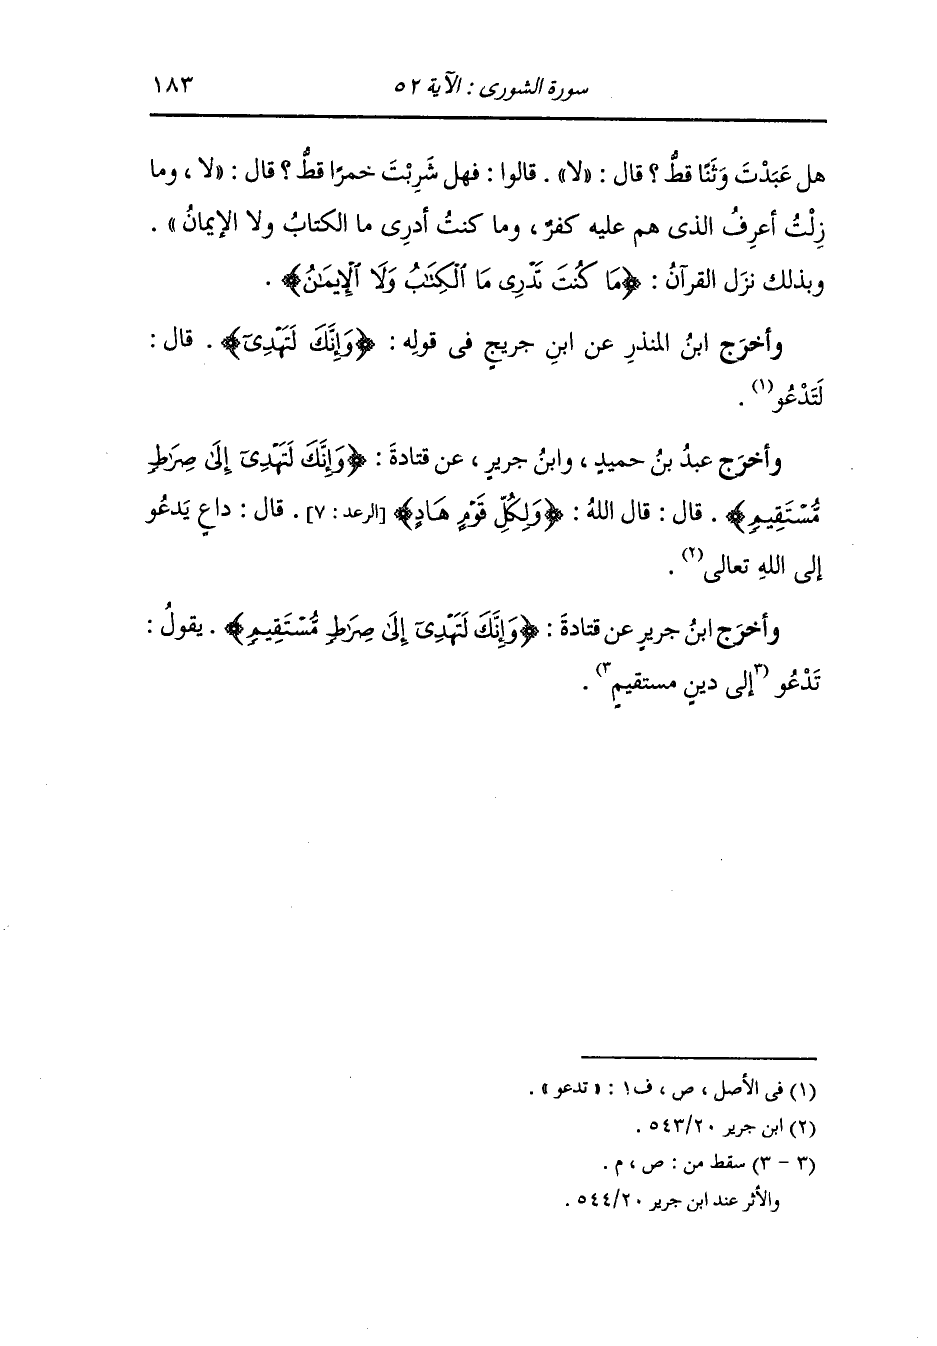 سورة الشورى : الآية ٥٢ ١٨٣
هل عَبَدْتَ وَثَنًا قطُّ ؟ قال : «لا» . قالوا : فهل شَرِبْتَ خمرًا قطُّ ؟ قال : «لا ، وما
زِلْتُ أعرِفُ الذى هم عليه كفرٌ ، وما كنتُ أدرِى ما الكتابُ ولا الإيمانُ» .
وبذلك نزَل القرآنُ : ﴿مَا كُنتَ تَدْرِى مَا ٱلْكِتَٰبُ وَلَا ٱلْإِيمَٰنُ﴾ .
وأخرَج ابنُ المنذرِ عن ابنِ جريجٍ فى قولِه : ﴿وَإِنَّكَ لَتَهْدِىٓ﴾ . قال :
لَتَدْعُو(١) .
وأخرَج عبدُ بنُ حميدٍ ، وابنُ جريرٍ ، عن قتادةَ : ﴿وَإِنَّكَ لَتَهْدِىٓ إِلَىٰ صِرَٰطٍ
مُّسْتَقِيمٍ﴾ . قال : قال اللهُ : ﴿وَلِكُلِّ قَوْمٍ هَادٍ﴾ [الرعد : ٧] . قال : داعٍ يَدعُو
إلى اللهِ تعالى(٢) .
وأخرَج ابنُ جريرٍ عن قتادةَ : ﴿وَإِنَّكَ لَتَهْدِىٓ إِلَىٰ صِرَٰطٍ مُّسْتَقِيمٍ﴾ . يقولُ :
تَدْعُو (٣إلى دينٍ مستقيمٍ٣) .
(١) فى الأصل ، ص ، ف١ : « تدعو » .
(٢) ابن جرير ٢٠/ ٥٤٣ .
(٣ - ٣) سقط من : ص ، م .
والأثر عند ابن جرير ٢٠/ ٥٤٤ .